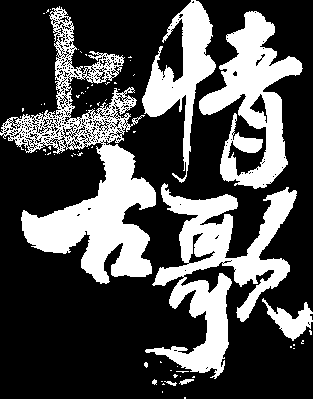 上古
情歌